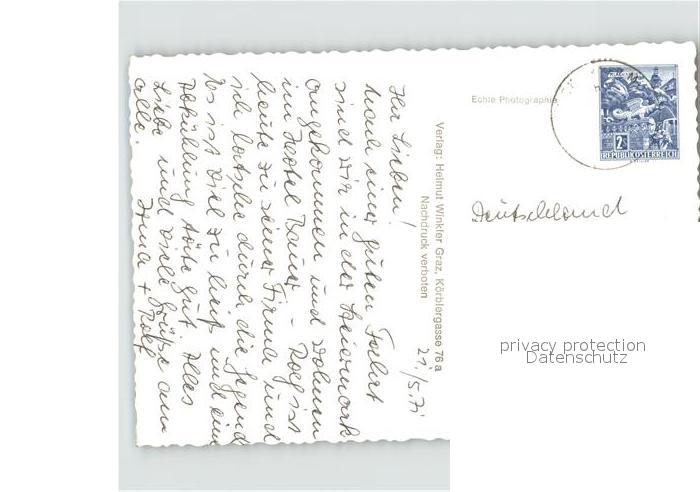 21./5.71
Ihr Lieben!
Nach einer guten Fahrt
sind wir in der Steiermark
angekommen und wohnen
im Hotel Bauer - Rolf ist
heute zu seiner Firma und
ich latsche durch die Gegend
Es ist viel zu heiß und eine
Abkühlung täte gut. Alles
Liebe und viele Grüße an
alle. Irma + Rolf
Verlag: Helmut Winkler Graz, Körblergasse 76 a
Nachdruck verboten
Echte Photographie
2S
REPUBLIK ÖSTERREICH
Deutschland
privacy protection
Datenschutz